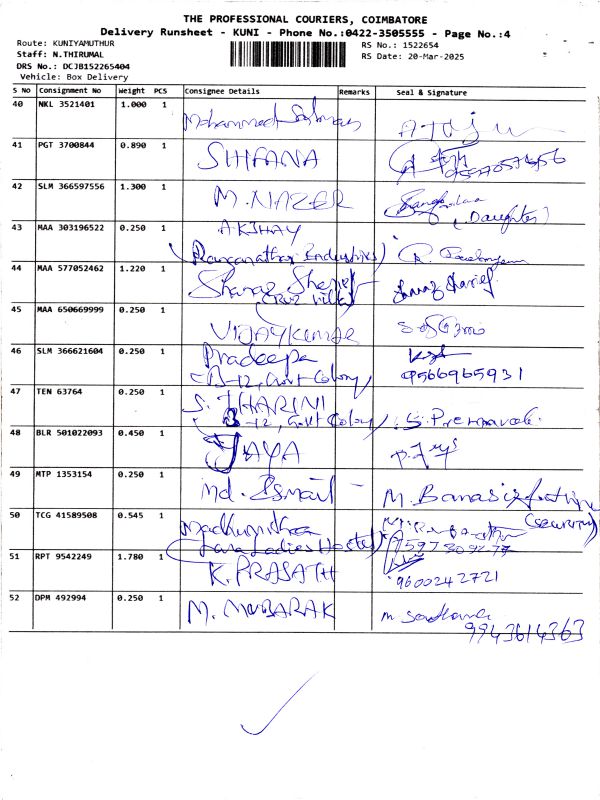 THE PROFESSIONAL COURIERS, COIMBATORE
Delivery Runsheet - KUNI - Phone No.:0422-3505555 - Page No.:4
Route: KUNIYAMUTHUR
RS No.: 1522654
Staff: N.THIRUMAL
RS Date: 20-Mar-2025
DRS No.: DCJB152265404
Vehicle: Box Delivery
S No Consignment No Weight PCS Consignee Details Remarks Seal & Signature
40 NKL 3521401 1.000 1 Mohammed
41 PGT 3700844 0.890 1 SHIFANA
42 SLM 366597556 1.300 1 M.NAZER
(Daughter)
43 MAA 303196522 0.250 1 AKSHAY
(Ranganathar Industries)
44 MAA 577052462 1.220 1 Shanaz Sherief
45 MAA 650669999 0.250 1 VIJAYKUMAR
46 SLM 366621604 0.250 1 Pradeepa
B-12, Govt Colony 9566965931
47 TEN 63764 0.250 1 S. THARINI
B-12, Govt Colony S. Premavali
48 BLR 501022093 0.450 1 JAYA
49 MTP 1353154 0.250 1 Md. Ismail M. Banas
(Security)
50 TCG 41589508 0.545 1
(Lara Ladies Hostel)
51 RPT 9542249 1.780 1 K. PRASATH 9600242721
52 DPM 492994 0.250 1 M. MUBARAK
9943614363